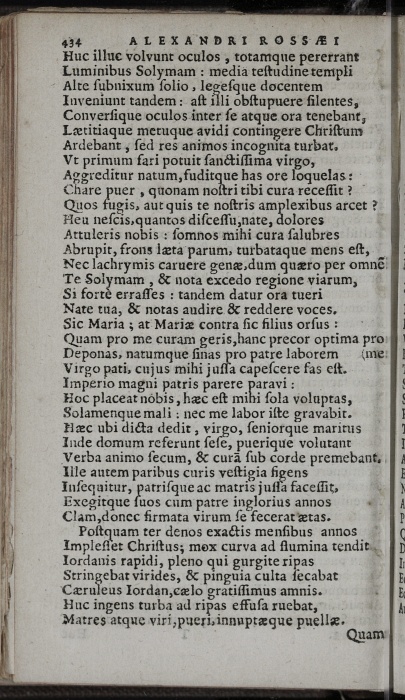 434 ALEXANDRI ROSSÆI
Huc illuc volvunt oculos , totamque pererrant
Luminibus Solymam : media teſtudine templi
Alte ſubnixum ſolio , legeſque docentem
Inveniunt tandem : aſt illi obſtupuere ſilentes,
Converſique oculos inter ſe atque ora tenebant,
Lætitiaque metuque avidi contingere Chriſtum
Ardebant , ſed res animos incognita turbat.
Vt primum fari potuit ſanctiſſima virgo,
Aggreditur natum, fuditque has ore loquelas :
Chare puer , quonam noſtri tibi cura receſſit ?
Quos fugis, aut quis te noſtris amplexibus arcet ?
Heu neſcis, quantos diſceſſu, nate, dolores
Attuleris nobis : ſomnos mihi cura ſalubres
Abrupit, frons læta parum, turbataque mens eſt,
Nec lachrymis caruere genæ, dum quæro per omnē
Te Solymam , & nota excedo regione viarum,
Si forte erraſſes : tandem datur ora tueri
Nate tua, & notas audire & reddere voces.
Sic Maria ; at Mariæ contra ſic filius orſus :
Quam pro me curam geris, hanc precor optima pro
Deponas, natumque ſinas pro patre laborem (me
Virgo pati, cujus mihi juſſa capeſcere fas eſt.
Imperio magni patris parere paravi :
Hoc placeat nobis, hæc eſt mihi ſola voluptas,
Solamenque mali : nec me labor iſte gravabit.
Hæc ubi dicta dedit , virgo, ſeniorque maritus
Inde domum referunt ſeſe, puerique volutant
Verba animo ſecum, & curā ſub corde premebant.
Ille autem paribus curis veſtigia figens
Inſequitur, patriſque ac matris juſſa faceſſit,
Exegitque ſuos cum patre inglorius annos
Clam, donec firmata virum ſe fecerat ætas.
Poſtquam ter denos exactis menſibus annos
Impleſſet Chriſtus; mox curva ad flumina tendit
Iordanis rapidi, pleno qui gurgite ripas
Stringebat virides, & pinguia culta ſecabat
Cæruleus Iordan, cælo gratiſſimus amnis.
Huc ingens turba ad ripas effuſa ruebat,
Matres atque viri, pueri, innuptæque puellæ.
Quam